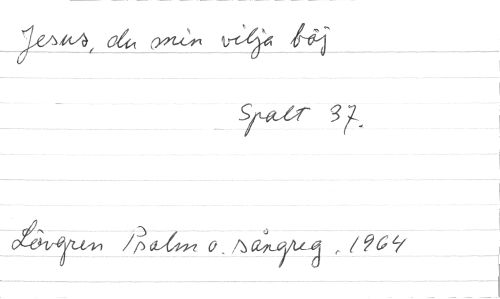 Jesus, du min vilja böj
Spalt 37.
Lövgren Psalm o. sångreg. 1964